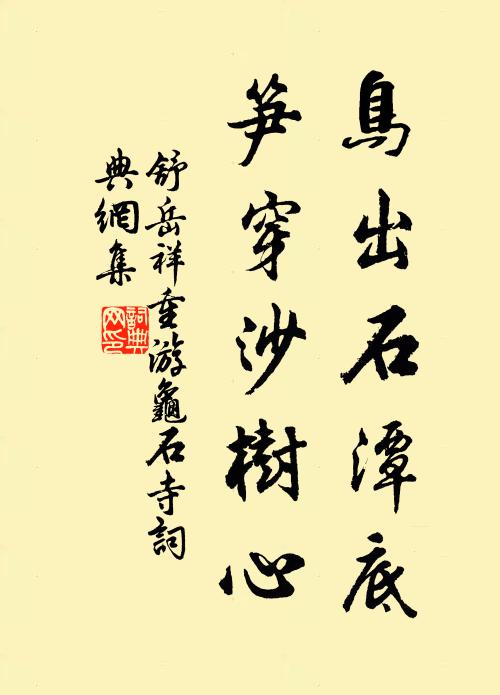 鳥出石潭底
笋穿沙樹心
舒岳祥重游龜石寺詞
典網集
詞典
网印